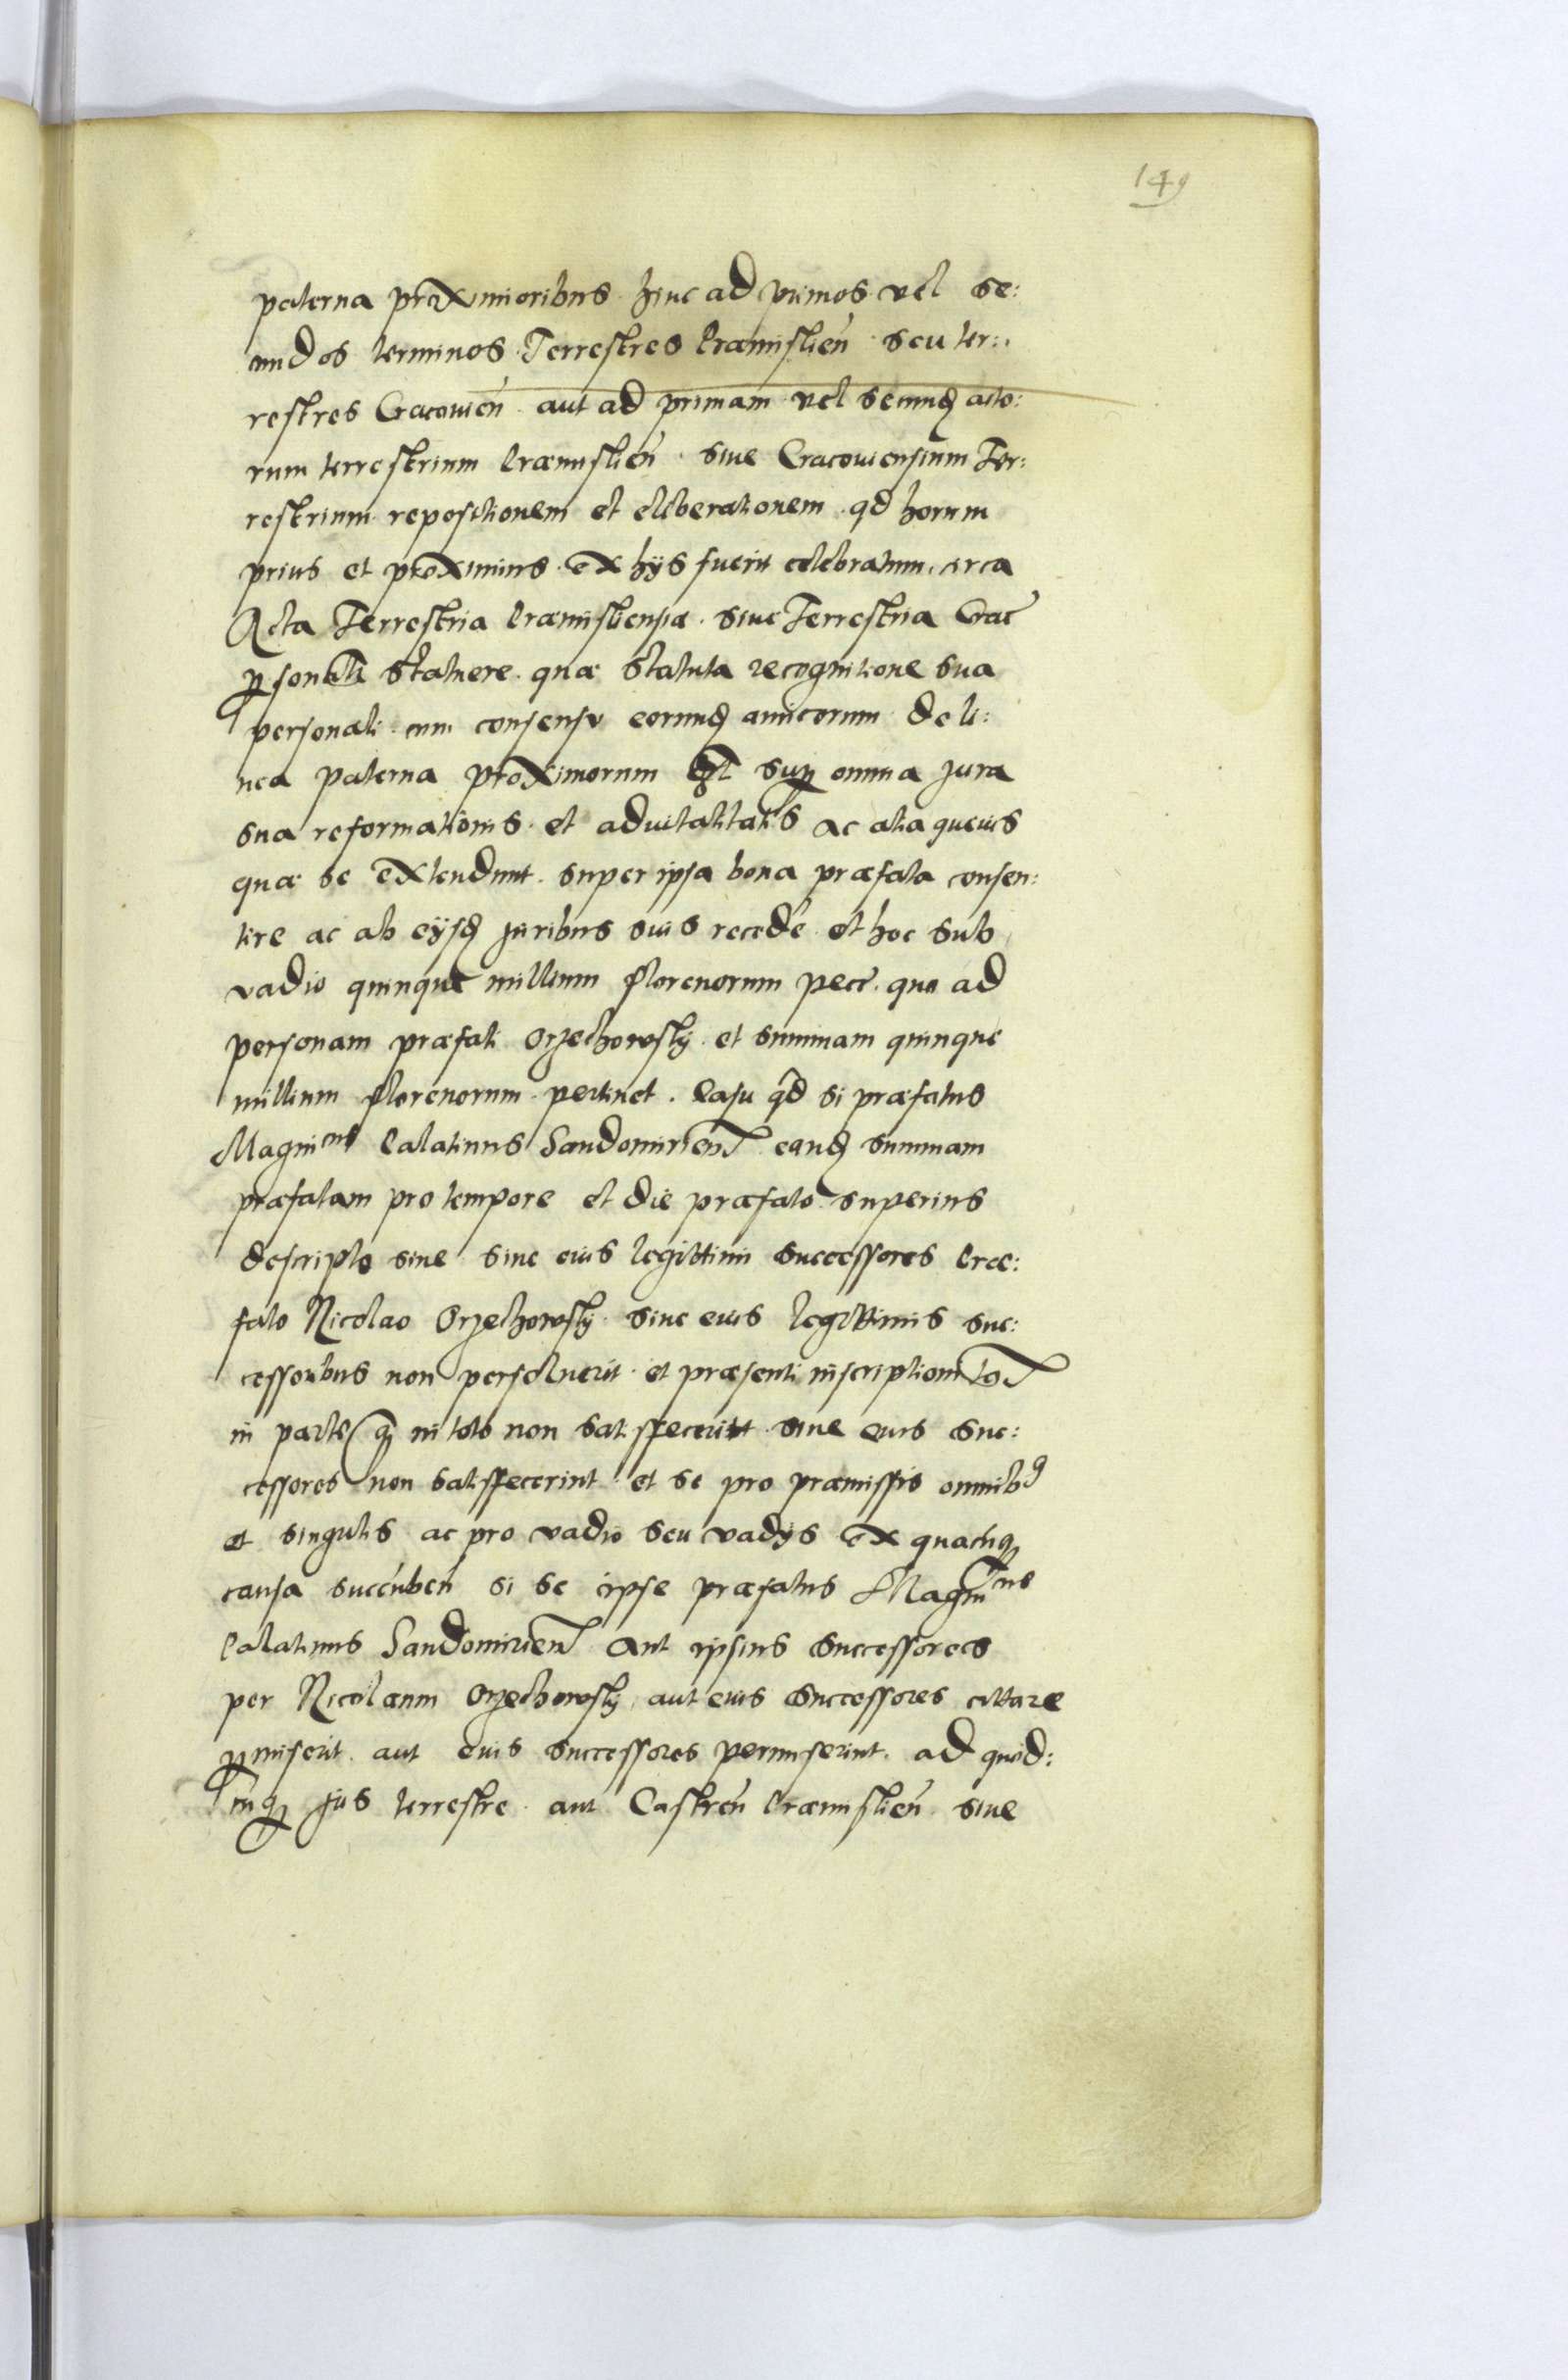 149
paterna proximioribus hinc ad primos vel se:
cundos terminos Terrestres Præmislien̄ seu ter:
restres Cracovien̄ aut ad primam vel secundꝫ acto:
rum terrestrium Præmislien̄ siue Cracouiensium Ter:
restrium repositionem et eliberationem qd horum
prius et proximius ex hÿs fuerit celebratum circa
Acta Terrestria Præmisliensia siue Terrestria Crac̄
ꝑsonal̄r statuere quæ statuta recognitione sua
personali cum consensu eorundꝫ amicorum de li:
nea paterna proximorum suꝑ omnia jura
sua reformationis et aduitalitatis ac alia queuis
quæ se extendunt super ipsa bona præfata consen:
tire ac ab eÿsdꝫ juribus suis recedē et hoc sub
vadio quinque millium florenorum pecc̄ qua ad
personam præfati Orzechowskÿ et summam quinque
millium florenorum pertinet. Casu qd̄ si præfatus
Magnicus Palatinus Sandomirien̄ eandꝫ summam
præfatam pro tempore et die præfato superius
descripto siue siue eius legittimi successores Præ:
fato Nicolao Orzechowskÿ siue euis legittimis suc:
cessoribus non persoluerit et præsenti inscriptioni
in parte qꝫ in toto non satisfecerit siue eius suc:
cessores non satisfecerint et se pro præmissis omnibꝰ
et singulis ac pro vadio seu vadÿs ex quacūqꝫ
causa succūben̄ si se ipse præfatus Magnicus
Palatinus Sandomirien̄ aut ipsius successores
per Nicolaum Orzechowskÿ aut euis successores cittare
ꝑmiserit aut euis successores permiserint ad quod:
cūqꝫ jus terrestre aut Castren̄ Præmislien̄ siue